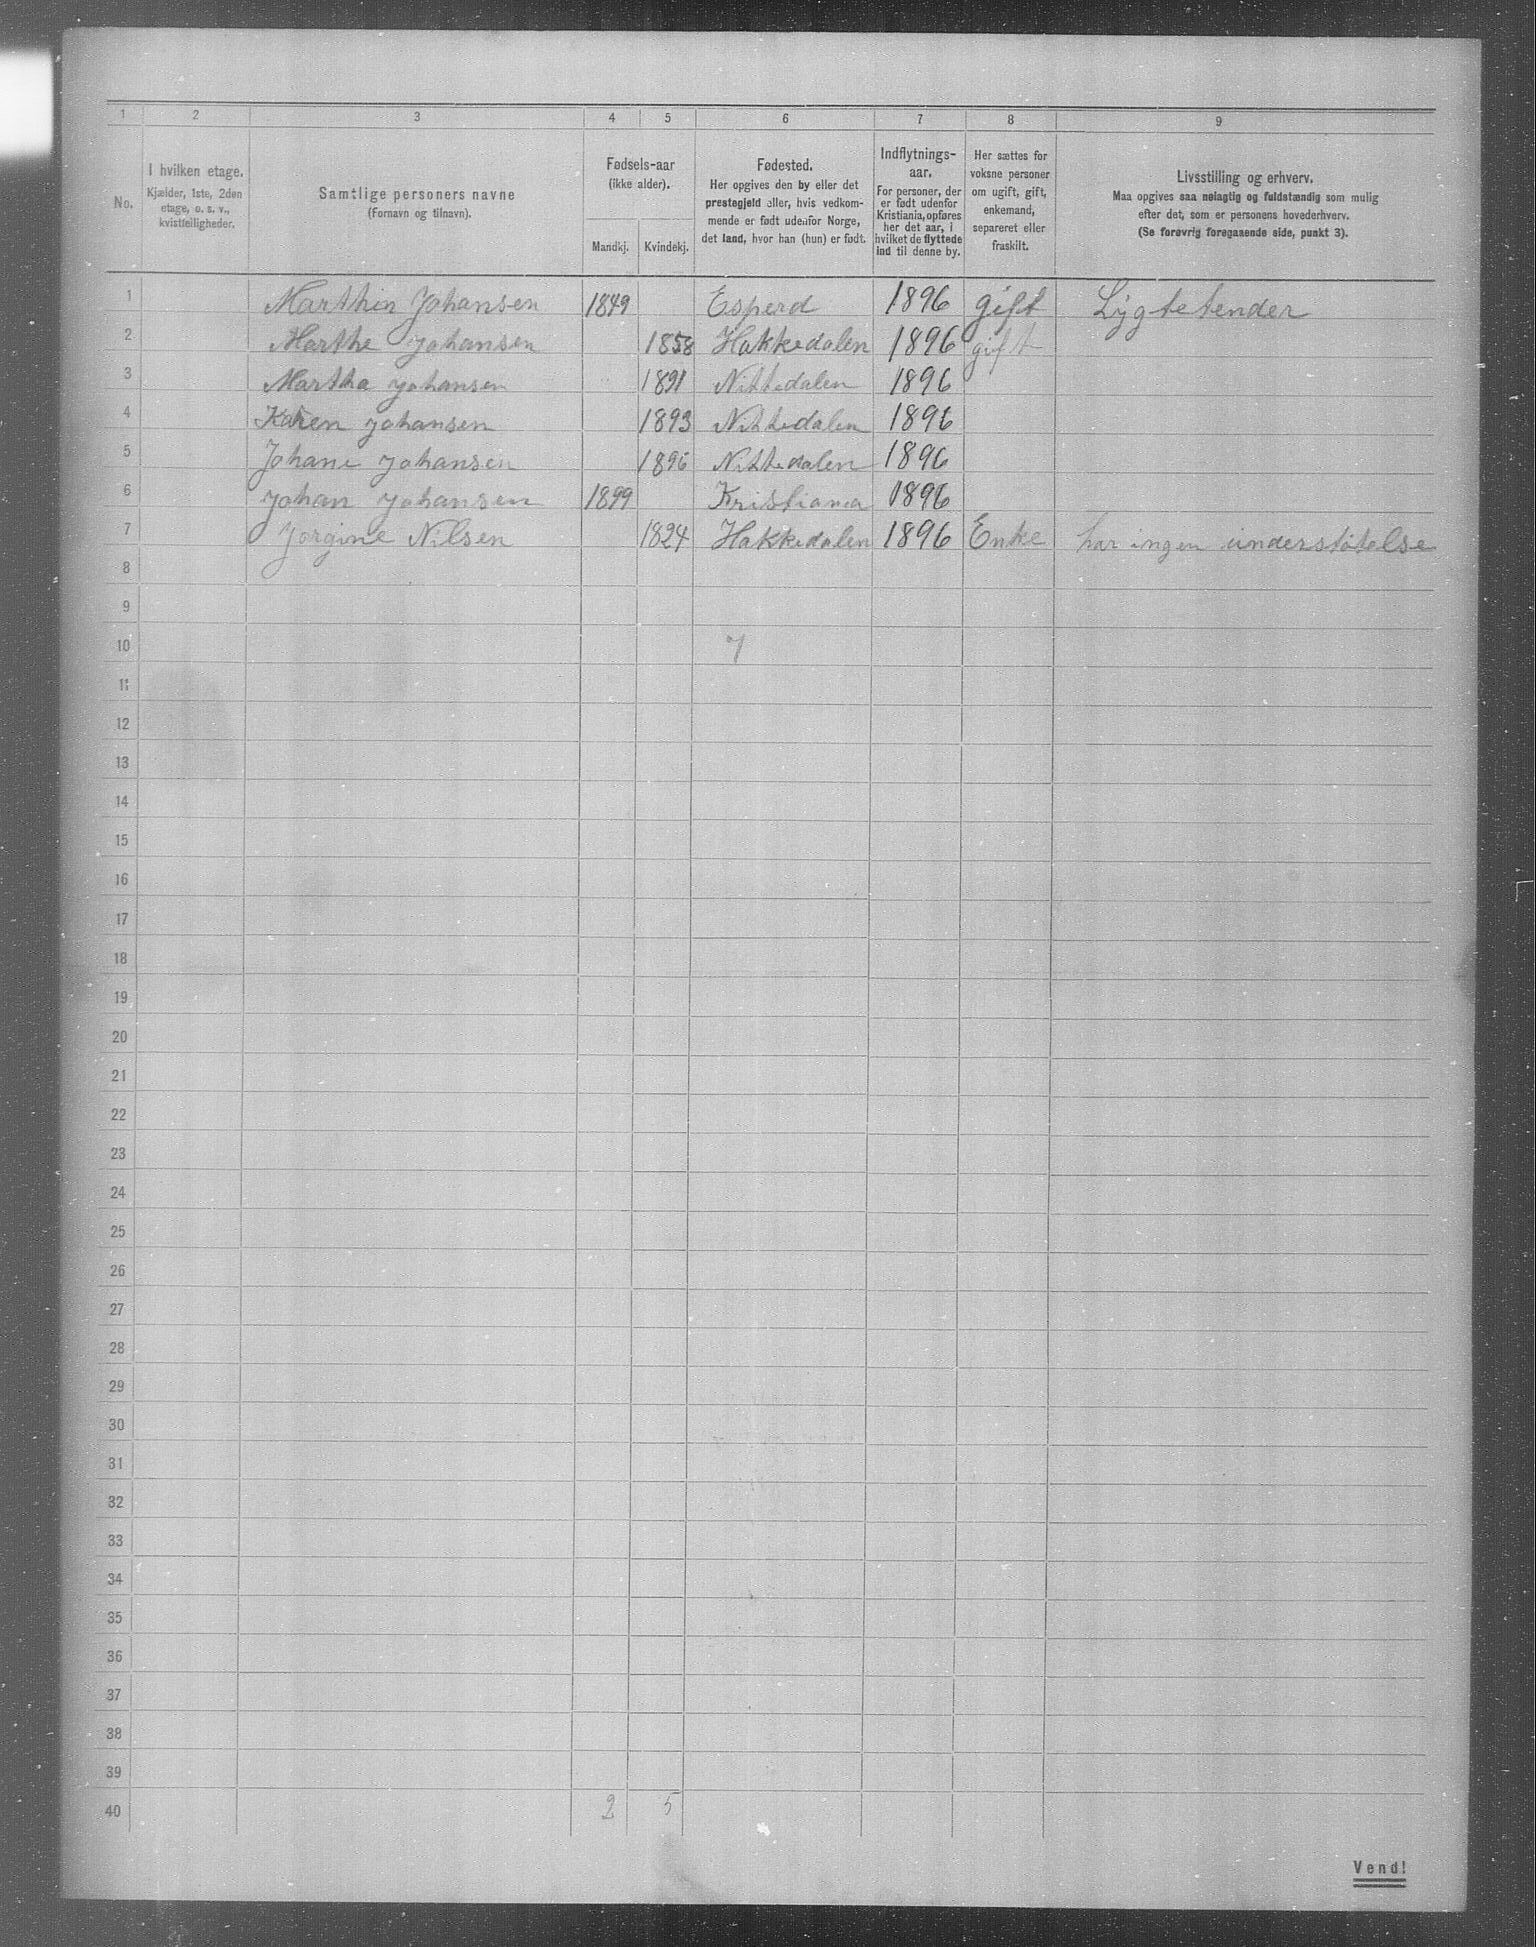 1 2 3 4 5 6 7 8 9
No.
I hvilken etage.
Kjælder, 1ste, 2den
etage, o. s. v.,
kvistleiligheder.
Samtlige personers navne
(Fornavn og tilnavn).
Fødsels-aar
(ikke alder).
Mandkj. Kvindekj.
Fødested.
Her opgives den by eller det
prestegjeld eller, hvis vedkom-
mende er født udenfor Norge,
det land, hvor han (hun) er født.
Indflytnings-
aar.
For personer, der
er født udenfor
Kristiania, opføres
her det aar, i
hvilket de flyttede
ind til denne by.
Her sættes for
voksne personer
om ugift, gift,
enkemand,
separeret eller
fraskilt.
Livsstilling og erhverv.
Maa opgives saa nøiagtig og fuldstændig som mulig
efter det, som er personens hovederhverv.
(Se forøvrig foregaaende side, punkt 3).
1 Marthin Johansen 1849 Esperd 1896 gift Lygtetender
2 Marthe Johansen 1858 Hakkedalen 1896 gift
3 Martha Johansen 1891 Nittedalen 1896
4 Karen Johansen 1893 Nittedalen 1896
5 Johane Johansen 1896 Nittedalen 1896
6 Johan Johansen 1899 Kristiania 1896
7 Jorgine Nilsen 1824 Hakkedalen 1896 Enke har ingen understøtelse
8
9
10 7
11
12
13
14
15
16
17
18
19
20
21
22
23
24
25
26
27
28
29
30
31
32
33
34
35
36
37
38
39
40 2 5
Vend!